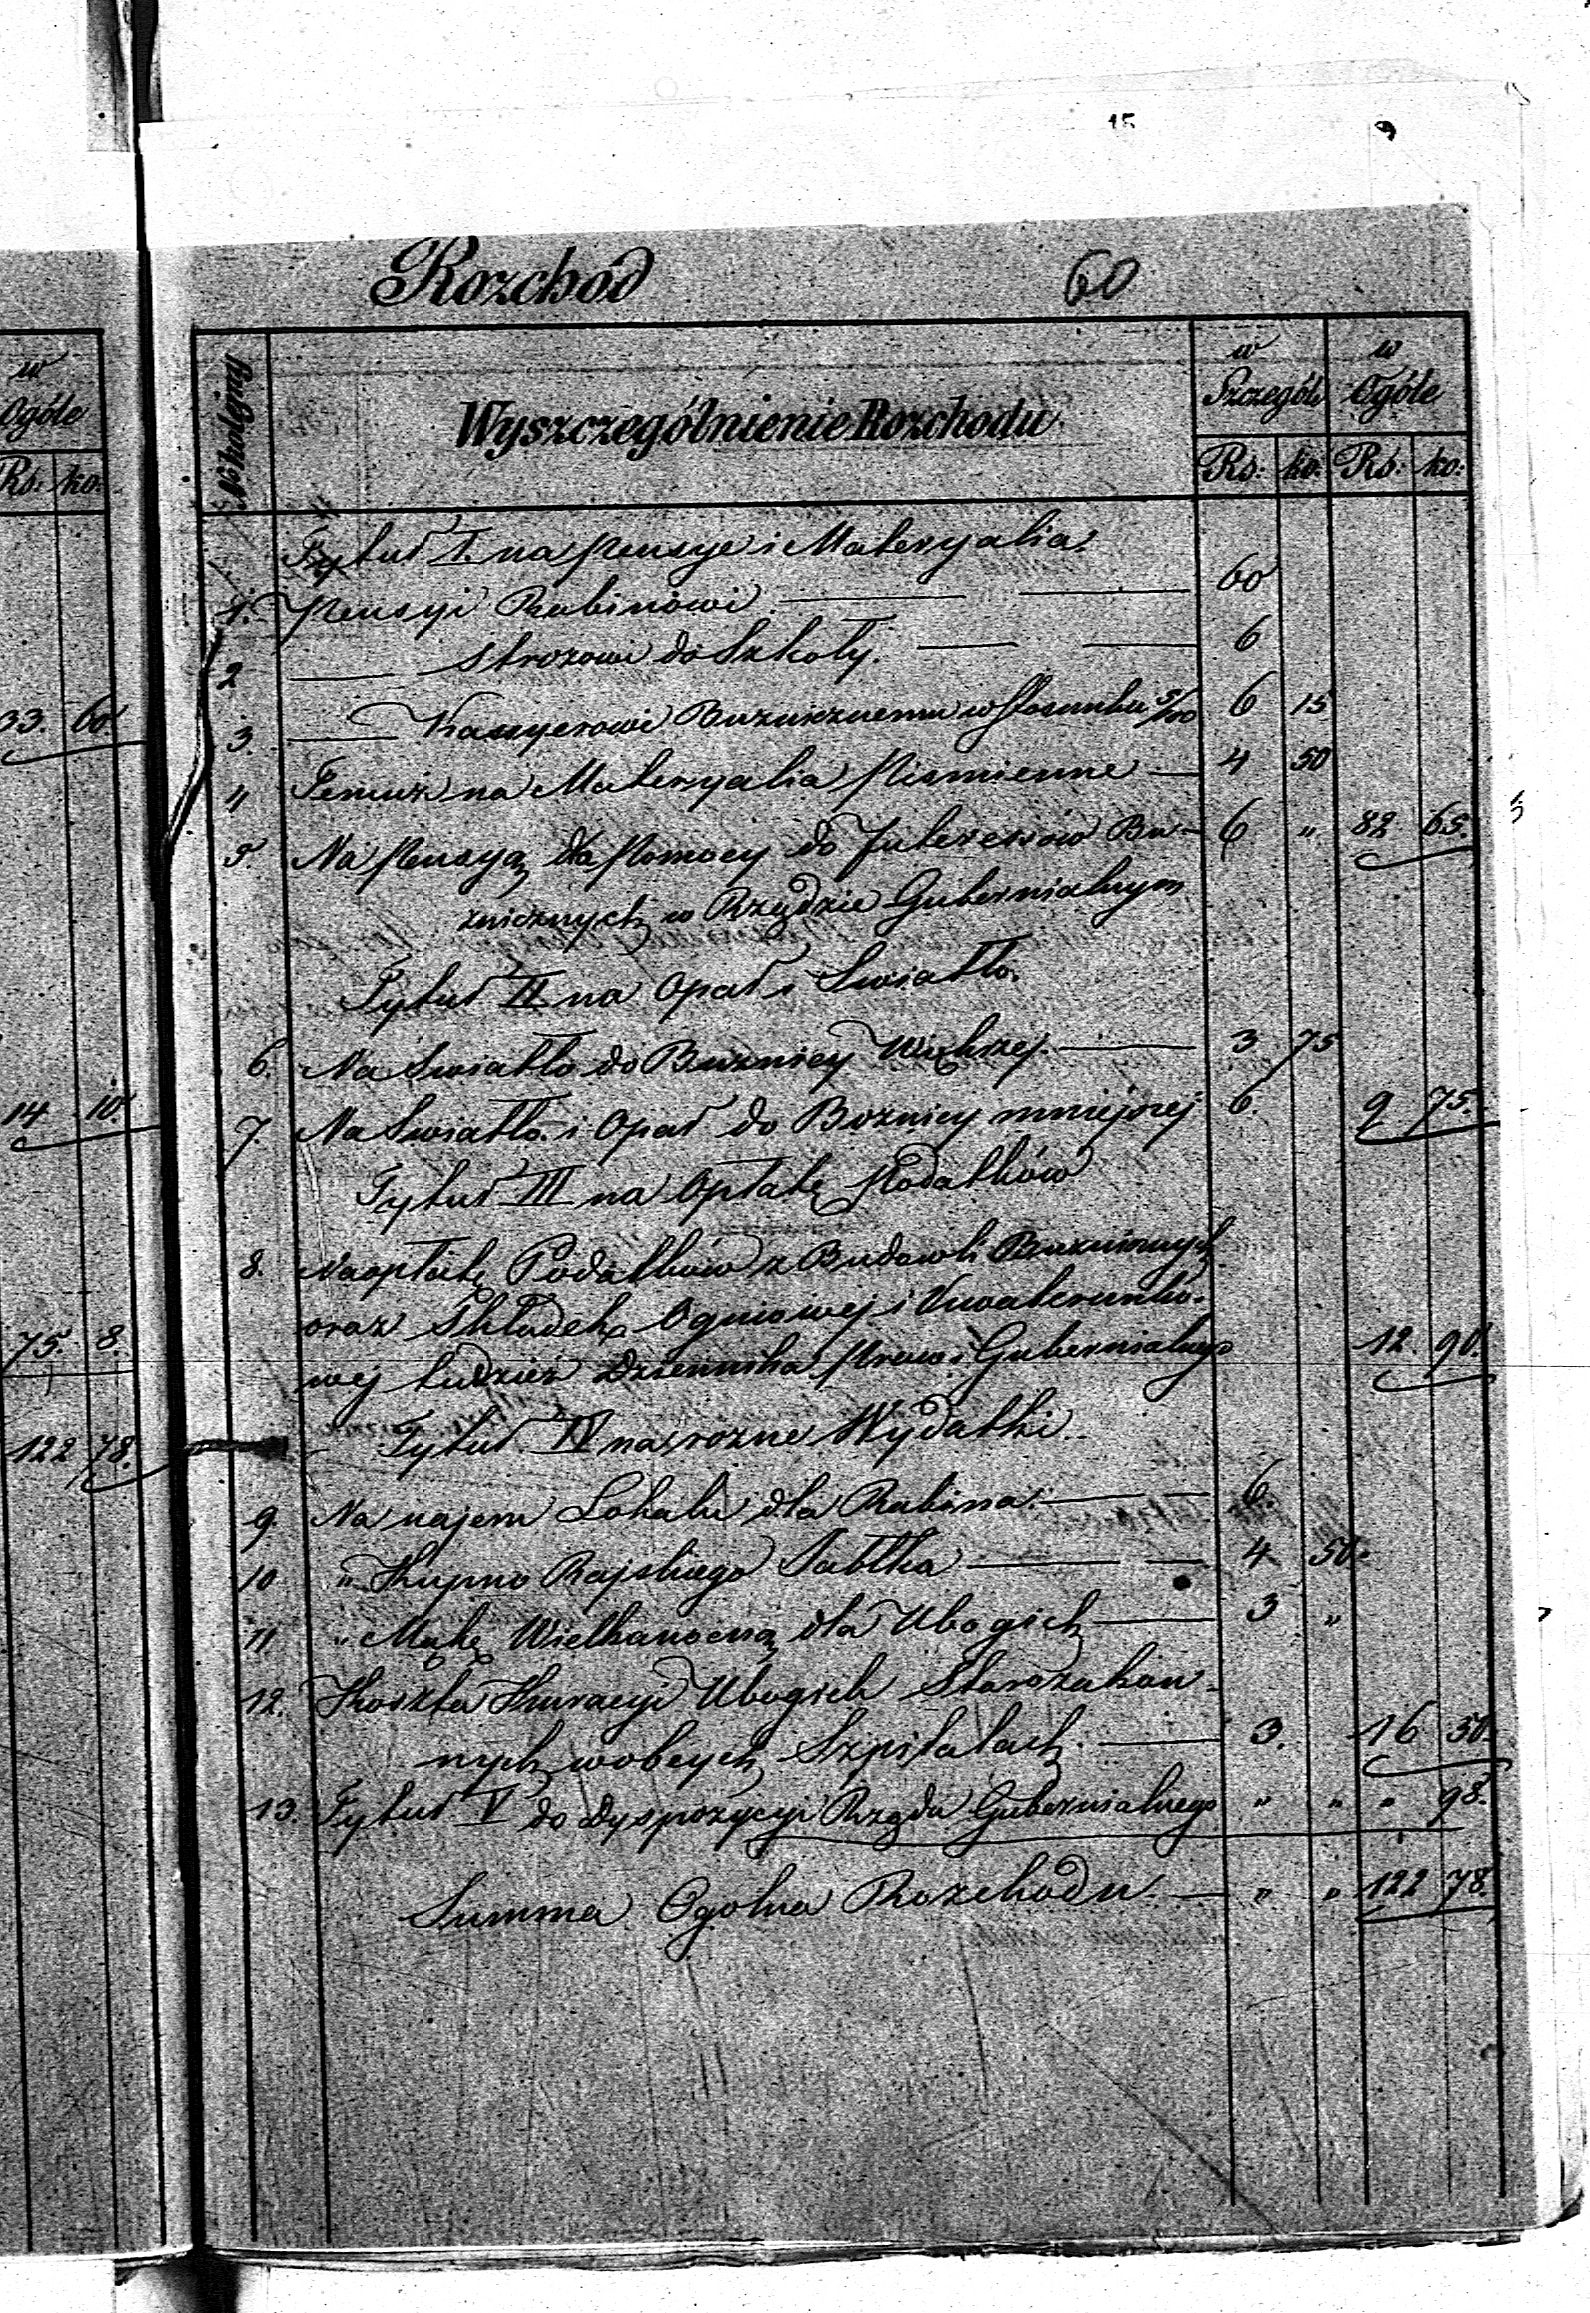 15
Rozchod 60
w
Ogóle
Rs: ko:
33. 60
14 10.
75. 8.
122 78.
№ kolejny
Wyszczególnienie Rozchodu
w Szczególe
w Ogóle
Rs: ko: Rs: ko:
Tytuł I. na Pensye i Materyalia.
1. Pensyi Rabinowi. 60
2 — Strozowi do Szkoły. 6
3. — Kassyerowi Buznicznemu w Stosunku 5/100 6 15
4 Temuż na Materyalia Pismienne — 4 50
5. Na Pensyą dla Pomocy do Interessów Bu- 6 " 82 65.
znicznych w Rządzie Gubernialnym
Tytuł II na Opał i Swiatło.
6. Na Swiatło do Buznicy Większej. 3 75
7. Na Swiatło i Opał do Boznicy mniejszej 6. 9 75.
Tytuł III na Opłatę Podatków
8. Na opłatę Podatków z Budowli Buznicznych
oraz Składek Ogniowej i Kwaterunko-
wej tudzież Dziennika Praw i Gubernialnego 12. 90.
Tytuł IV na rozne Wydatki.
9. Na najem Lokalu dla Rabina. 6.
10 " Kupno Rajskiego Jabłka 4 50.
11 " Mąkę Wielkanocną dla Ubogich 3 "
12. Koszta Kuracyi Ubogich Starozakon-
nych w obcych Szpitalach. 3. 16 50.
13. Tytuł V do Dyspozycyi Rządu Gubernialnego " " " 98.
Summa Ogolna Rozchodu. — " " 122 78.